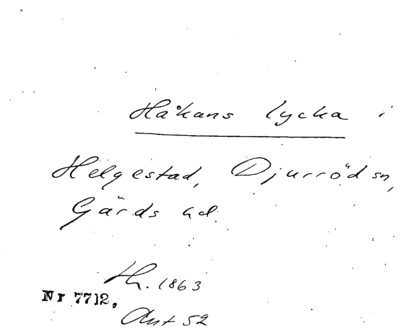 Håkans lycka i
Helgestad, Djurröd sn,
Gärds hd.
Th. 1863
Nr 7712,
Ant 52